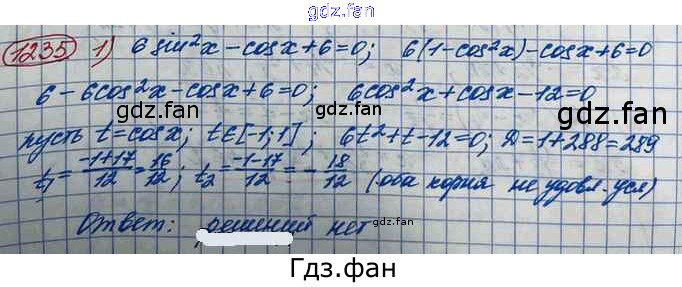 gdz.fan
1235 1) 6 sin²x - cosx + 6 = 0; 6(1 - cos²x) - cosx + 6 = 0
6 - 6cos²x - cosx + 6 = 0; 6cos²x + cosx - 12 = 0
gdz.fan gdz.fan
пусть t = cosx; t∈[-1;1]; 6t² + t - 12 = 0; D = 1 + 288 = 289
t₁ = (-1+17)/12 = 16/12; t₂ = (-1-17)/12 = -18/12 (оба корня не удовл. усл)
gdz.fan gdz.fan
Ответ: решений нет
Гдз.фан